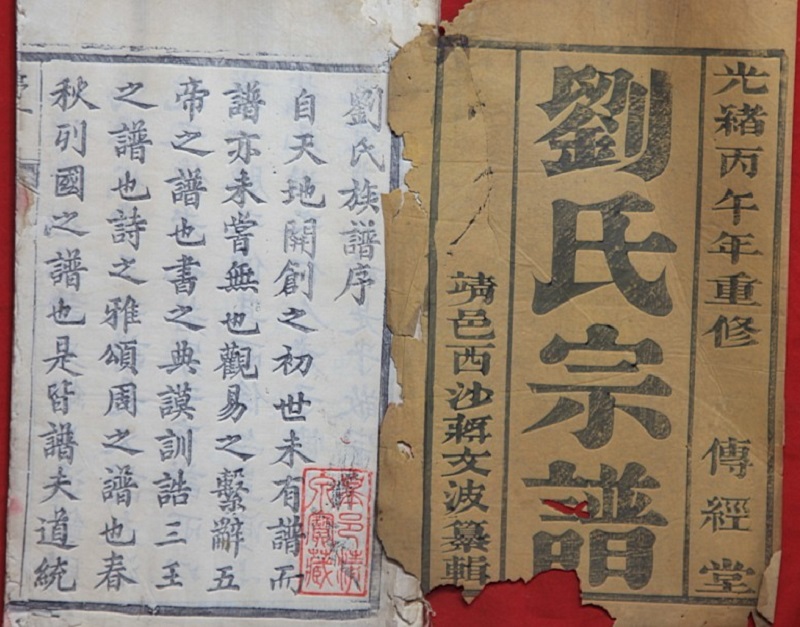 光緒丙午年重修 傳經堂
劉氏宗譜
靖邑西沙蔣文波纂輯
劉氏族譜序
自天地開創之初世未有譜而
譜亦未嘗無也觀易之繫辭五
帝之譜也書之典謨訓誥三王
之譜也詩之雅頌周之譜也春
秋列國之譜也是皆譜夫道統